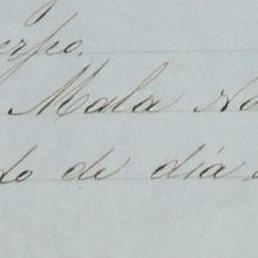 erpo.
Mala No
do de día